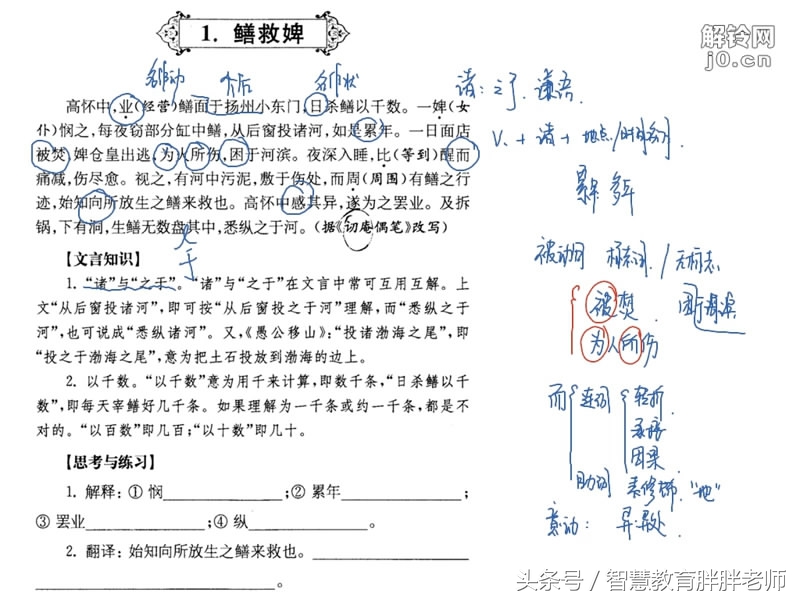 解铃网
j0.cn
1. 鳝救婢
名作动
介后
名作状
诸：之于. 兼语.
高怀中,业(经营)鳝面于扬州小东门,日杀鳝以千数。一婢(女
仆)悯之,每夜窃部分缸中鳝,从后窗投诸河,如是累年。一日面店
被焚,婢仓皇出逃,为人所伤,困于河滨。夜深入睡,比(等到)醒而
痛减,伤尽愈。视之,有河中污泥,敷于伤处,而周(周围)有鳝之行
迹,始知向所放生之鳝来救也。高怀中感其异,遂为之罢业。及拆
锅,下有洞,生鳝无数盘其中,悉纵之于河。(据《切庵偶笔》改写)
V. + 诸 + 地点/时间名词.
累年 多年
之于
【文言知识】
1. “诸”与“之于”。“诸”与“之于”在文言中常可互用互解。上
文“从后窗投诸河”,即可按“从后窗投之于河”理解,而“悉纵之于
河”,也可说成“悉纵诸河”。又,《愚公移山》:“投诸渤海之尾”,即
“投之于渤海之尾”,意为把土石投放到渤海的边上。
2. 以千数。“以千数”意为用千来计算,即数千条,“日杀鳝以千
数”,即每天宰鳝好几千条。如果理解为一千条或约一千条,都是不
对的。“以百数”即几百;“以十数”即几十。
被动句 标志词. / 无标志
被焚.
为人所伤
而 连词 转折.
承接
因果
助词 表修饰. “地”
意动: 异
【思考与练习】
1. 解释: ① 悯____;② 累年____;
③ 罢业____;④ 纵____。
2. 翻译: 始知向所放生之鳝来救也。____
____。
头条号 / 智慧教育胖胖老师